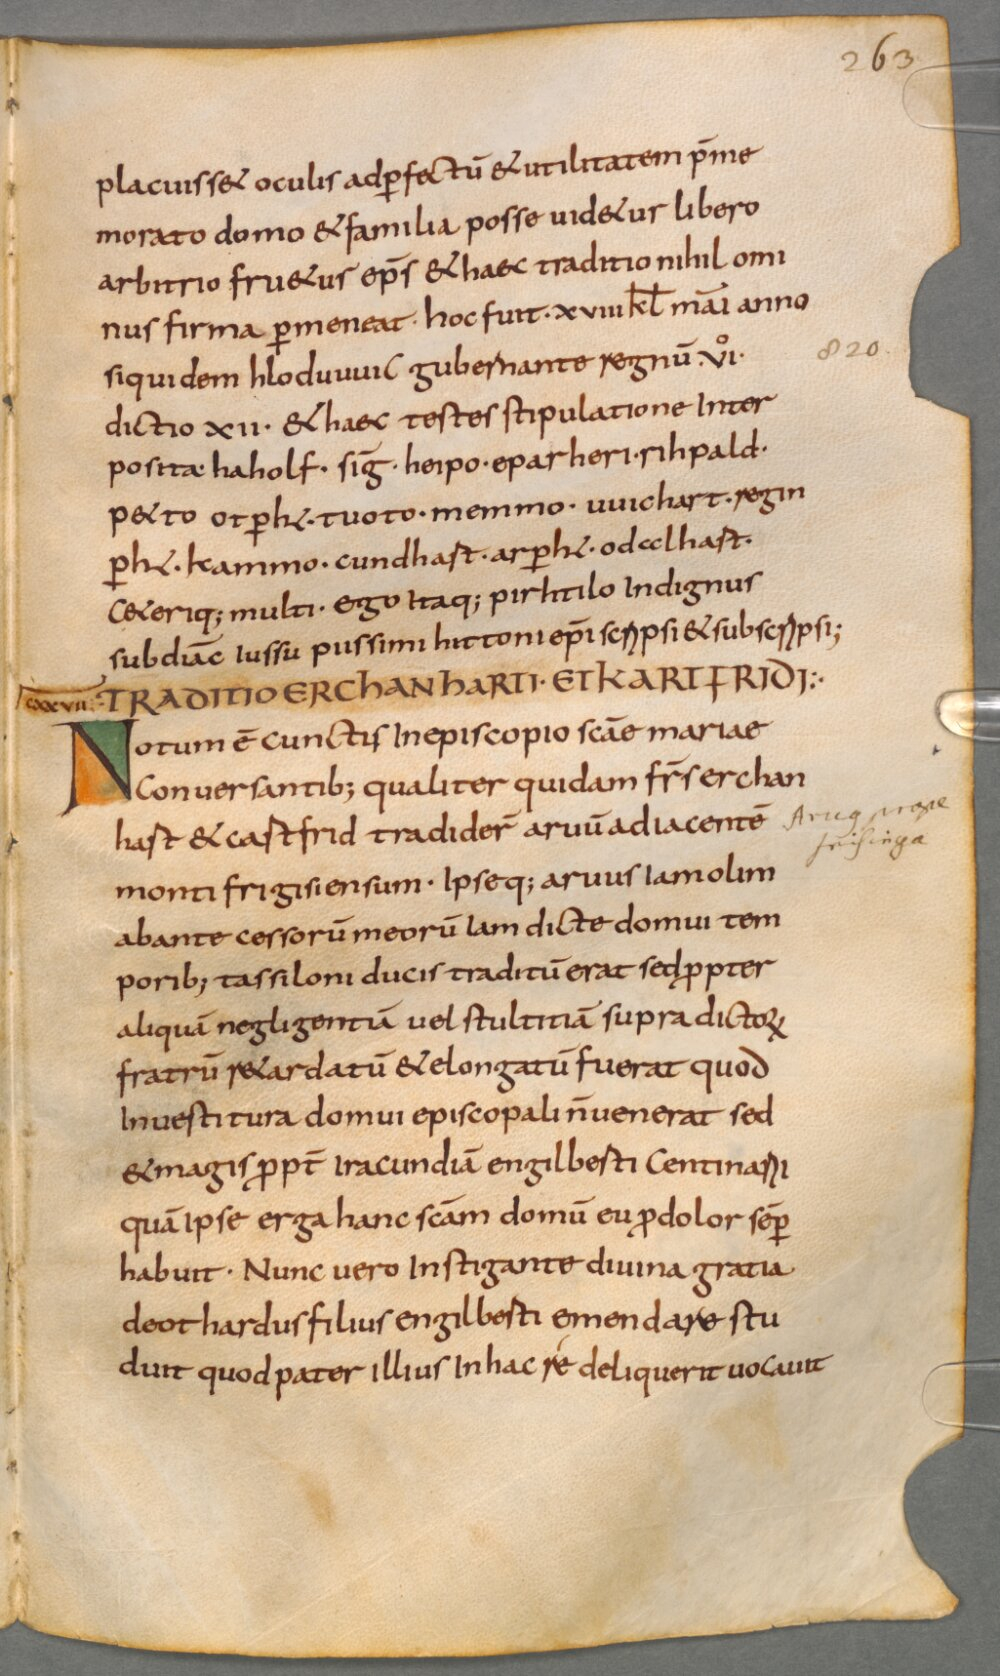 263
placuisset oculis adp̱fectū &utilitatem p̄me
morato domo &familia posse uid&ur libero
arbitrio fru&us ep̄s &haec traditio nihil omi
nus firma ꝑmeneat· hoc fuit· xviii kl̄ mai anno
siquidem hloduuuic gubernante regnū· vi· 820
dictio xii· &haec testes stipulatione Inter
posita· haholf· siḡ· heipo· eparheri· rihpald·
p&to otꝑht· tuoto· memmo· uuichart· regin
ꝑht· kammo· cundhart· arꝑht· odalhart·
C&eriq; multi· ego Itaq; pirhtilo Indignus
subdiac̄ Iussu piissimi hittoni ep̄i scripsi &subscripsi;
cxxvii· TRADITIO ERCHANHARTI· ET KARTFRIDI:·
Notum ē cunctis In episcopio scāe mariae
Conuersantib; qualiter quidam fr̄s erchan
hart &cartfrid tradider̄ aruū adiacentē
monti frigisiensum· Ipseq; aruus Iam olim
abante cessorū meorū Iam dicte domui tem
porib; tassiloni ducis traditū erat sed ꝓpter
aliquā negligentiā uel stultitiā supra dictoꝝ
fratrū r&ardatū &elongatū fuerat quod
Inuestitura domui episcopali n̄ uenerat sed
&magis ꝓpt̄ Iracundiā engilberti Centinarii
quā Ipse erga hanc scām domū eu ꝓdolor sēp
habuit· Nunc uero Instigante diuina gratia
deothardus filius engilberti emendare stu
duit quod pater Illius In hac re deliquerit uocauit